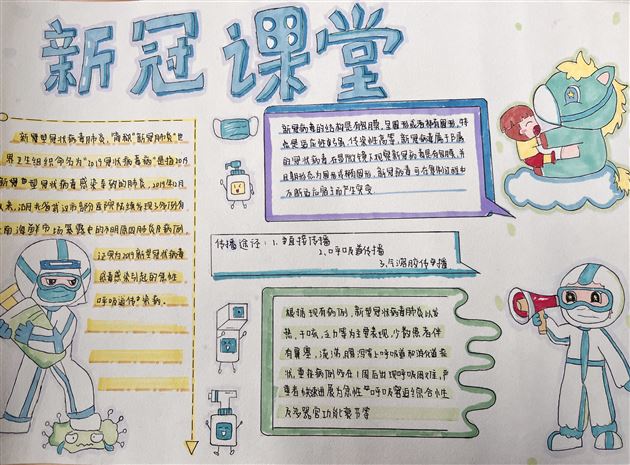 新冠课堂
新型冠状病毒肺炎，简称"新冠肺炎"世
界卫生组织命名为"2019冠状病毒病"是指2019
新型冠状病毒感染导致的肺炎，2019年12月
以来，湖北省武汉市部分医院陆续发现了多例有
华南海鲜市场暴露史的不明原因肺炎病例
证实为2019新型冠状病毒
感染引起的急性
呼吸道传染病。
新冠病毒的结构是有包膜，呈圆形或者椭圆形，特
点是适应性较强，传染性高等，新冠病毒属于β属
的冠状病毒，在显微镜下观察新冠病毒是有包膜，并
且期形态为圆形或椭圆形，新冠病毒可在复制过程中
不断适应宿主而产生突变
传播途径：1.直接传播
2.呼吸道传播
3.气溶胶传播
根据现有病例，新型冠状病毒肺炎以发
热，干咳，乏力等为主要表现，少数患者伴
有鼻塞，流涕，腹泻等上呼吸道和消化道症
状，重症病例多在1周后出现呼吸困难，严
重者快速进展为急性呼吸窘迫综合征
及多器官功能衰竭等